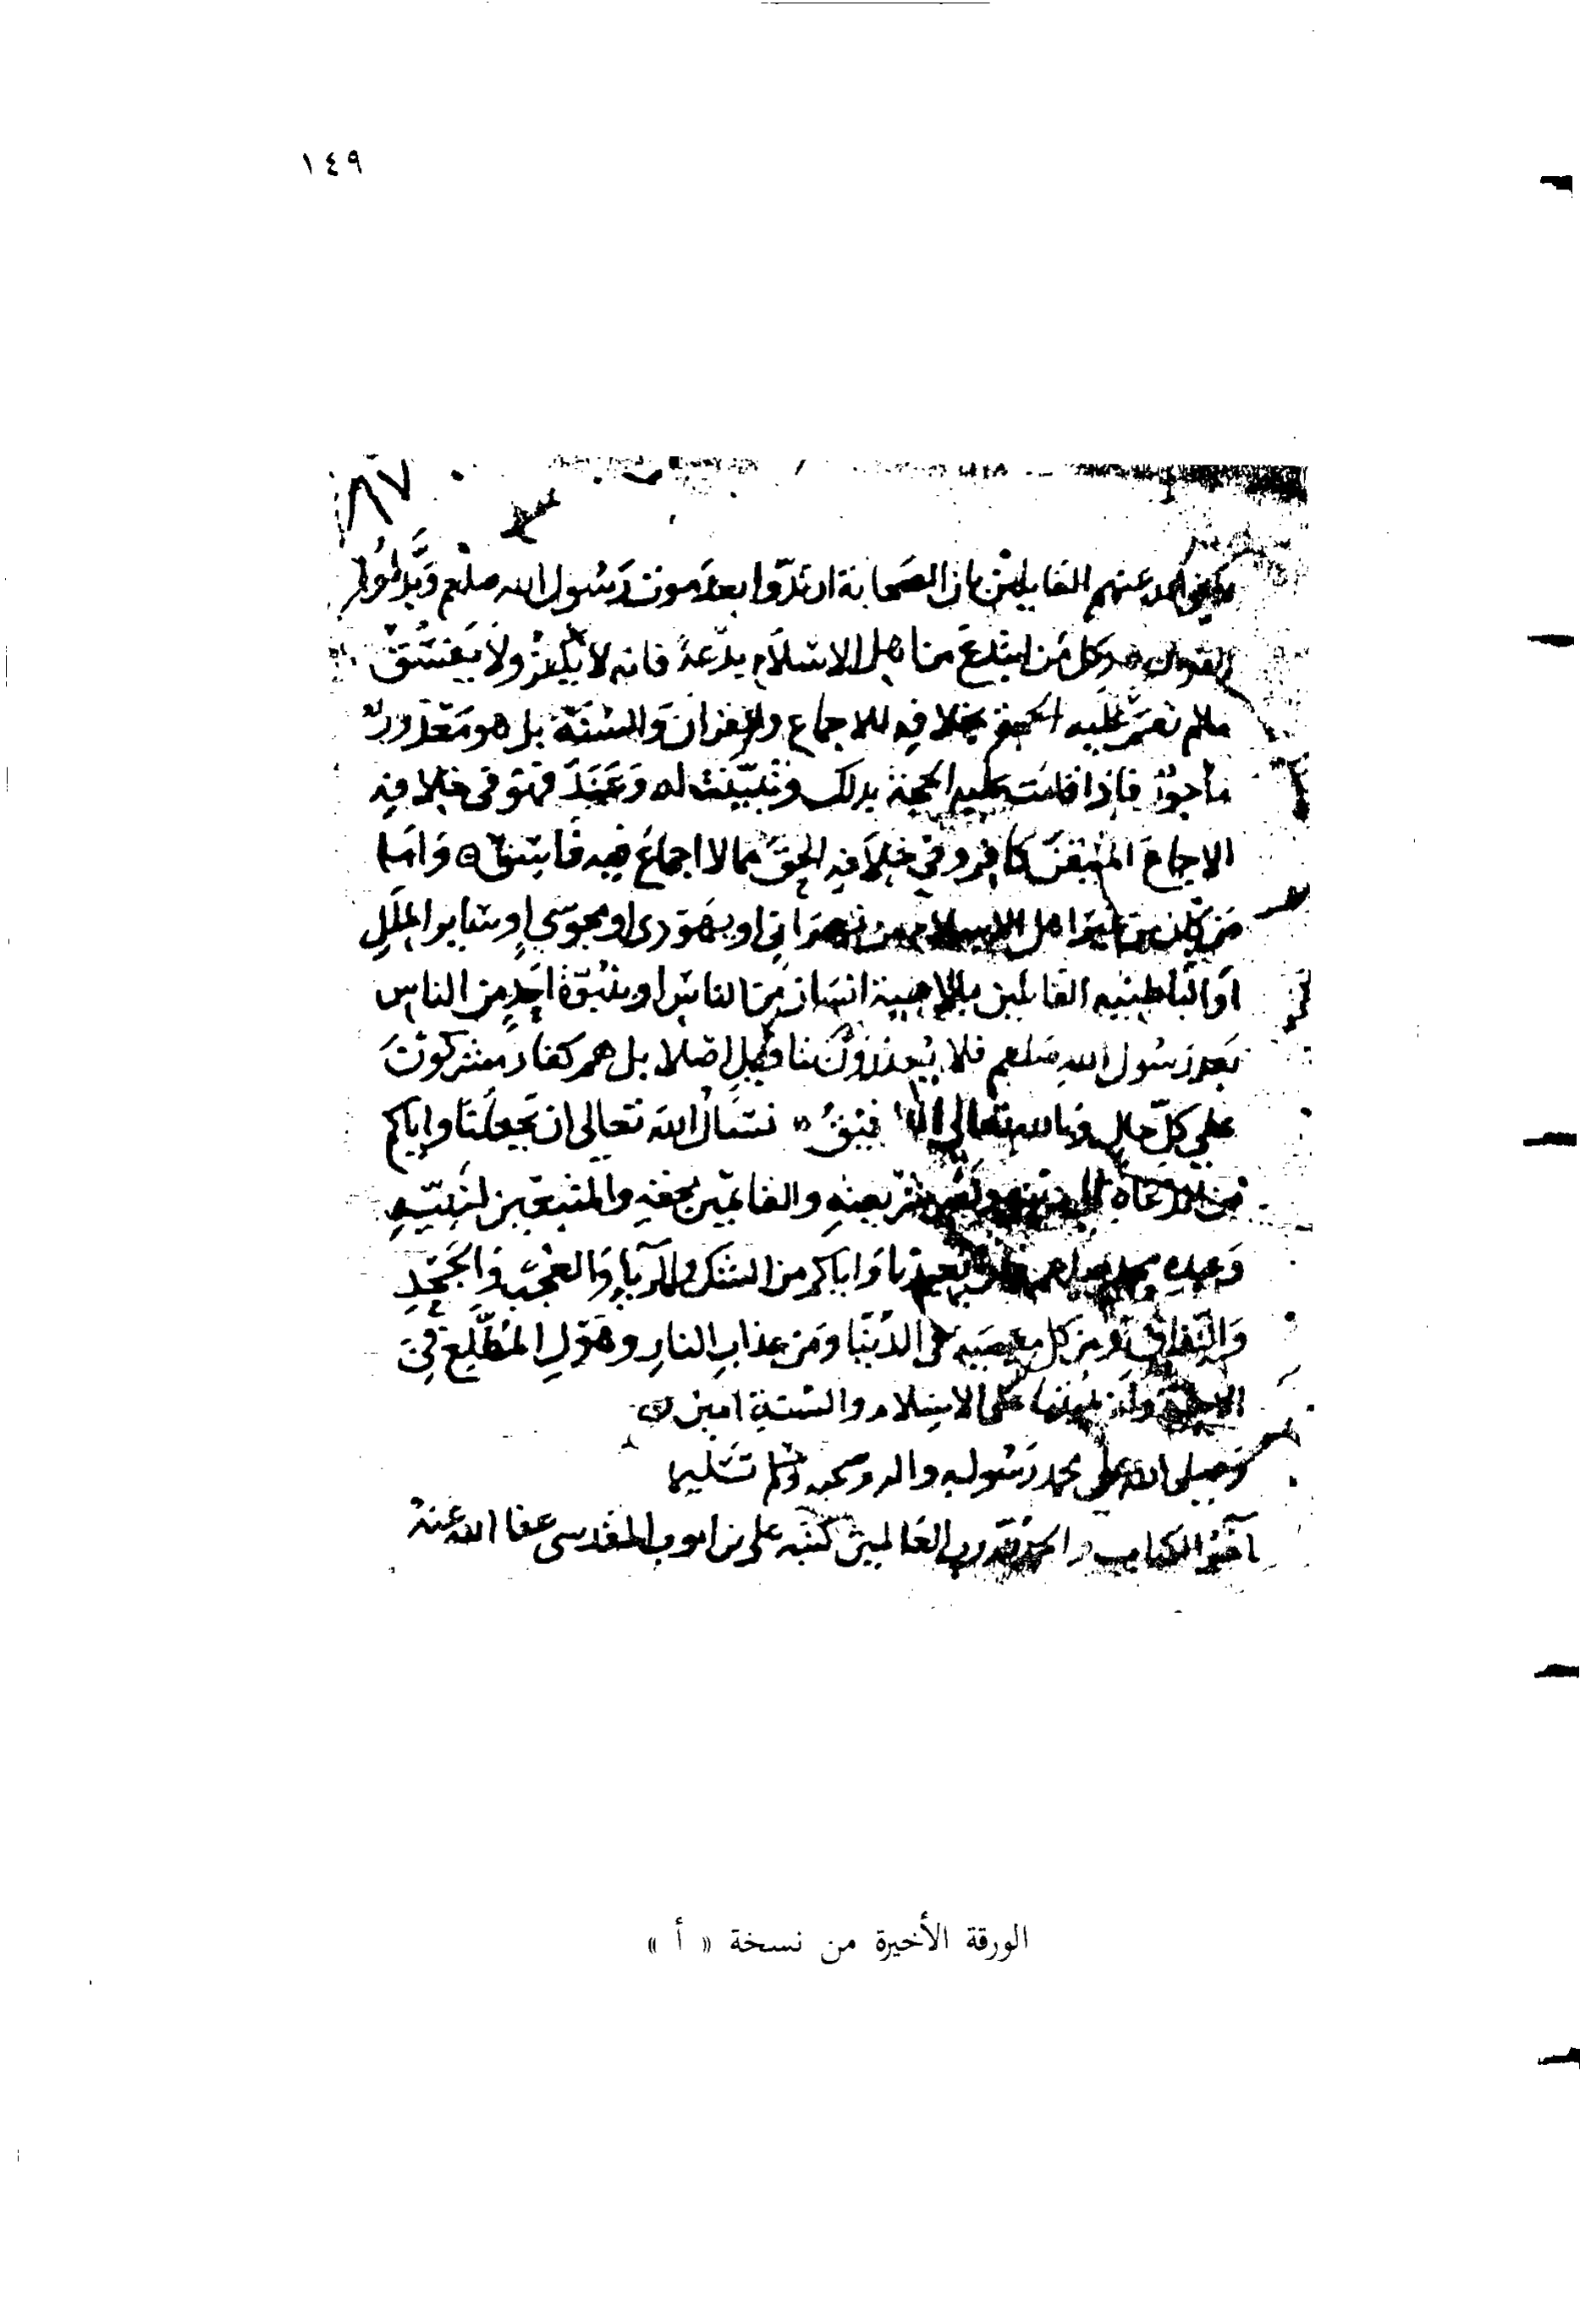 ١٤٩
٨٧
عنهم القايلين بان الصحابة ارتدوا بعد موت رسول الله صلعم وبدلوا
القران وكل من ابتدع من اهل الاسلام بدعة فانه لا يكفر ولا يفسق
مالم تقم عليه الحجة بخلافه للاجماع والقران والسنة بل هو معذور
ماجور فاذا قامت عليه الحجة بذلك وتبينت له وعند فهو في خلافه
الاجماع المتيقن كافر وفي خلافه الحق مما لا اجماع فيه فاسق واما
من كان من غير اهل الاسلام من نصراني او يهودي او مجوسي او ساير الملل
او الباطنيه القايلين بالاهية انسان من الناس او بنبوة احد من الناس
بعد رسول الله صلعم فلا يعذرون بتاويل اصلا بل هم كفار مشركون
على كل حال وبالله تعالى التوفيق نسال الله تعالى ان يجعلنا واياكم
من الدعاة الى دينه شريعته والقايمين بحقه والمتبعين لنبيه
وعبده محمد صلعم يعيذنا واياكم من الشك والريا والعجب والجحد
والنفاق ومن كل معصيه في الدنيا ومن عذاب النار وهول المطلع في
الاخرة وان يميتنا على الاسلام والسنة امين
وصلى الله على محمد رسوله واله وصحبه وسلم تسليما
آخر الكتاب والحمد لله رب العالمين كتبه على بن ايوب المقدسى عفا الله عنه
الورقة الأخيرة من نسخة « أ »